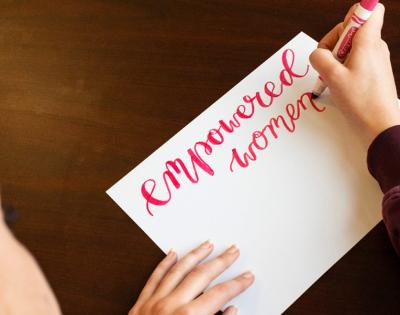 empowered
women